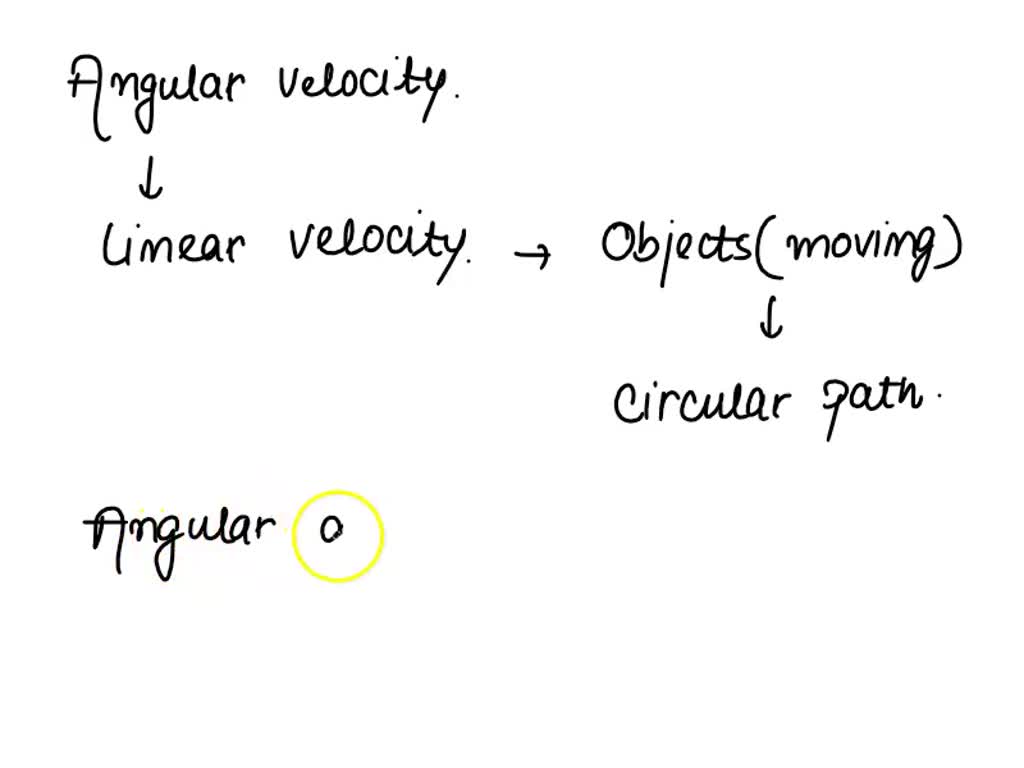 Angular velocity.
↓
Linear velocity. → Objects (moving)
↓
Circular path.
Angular a